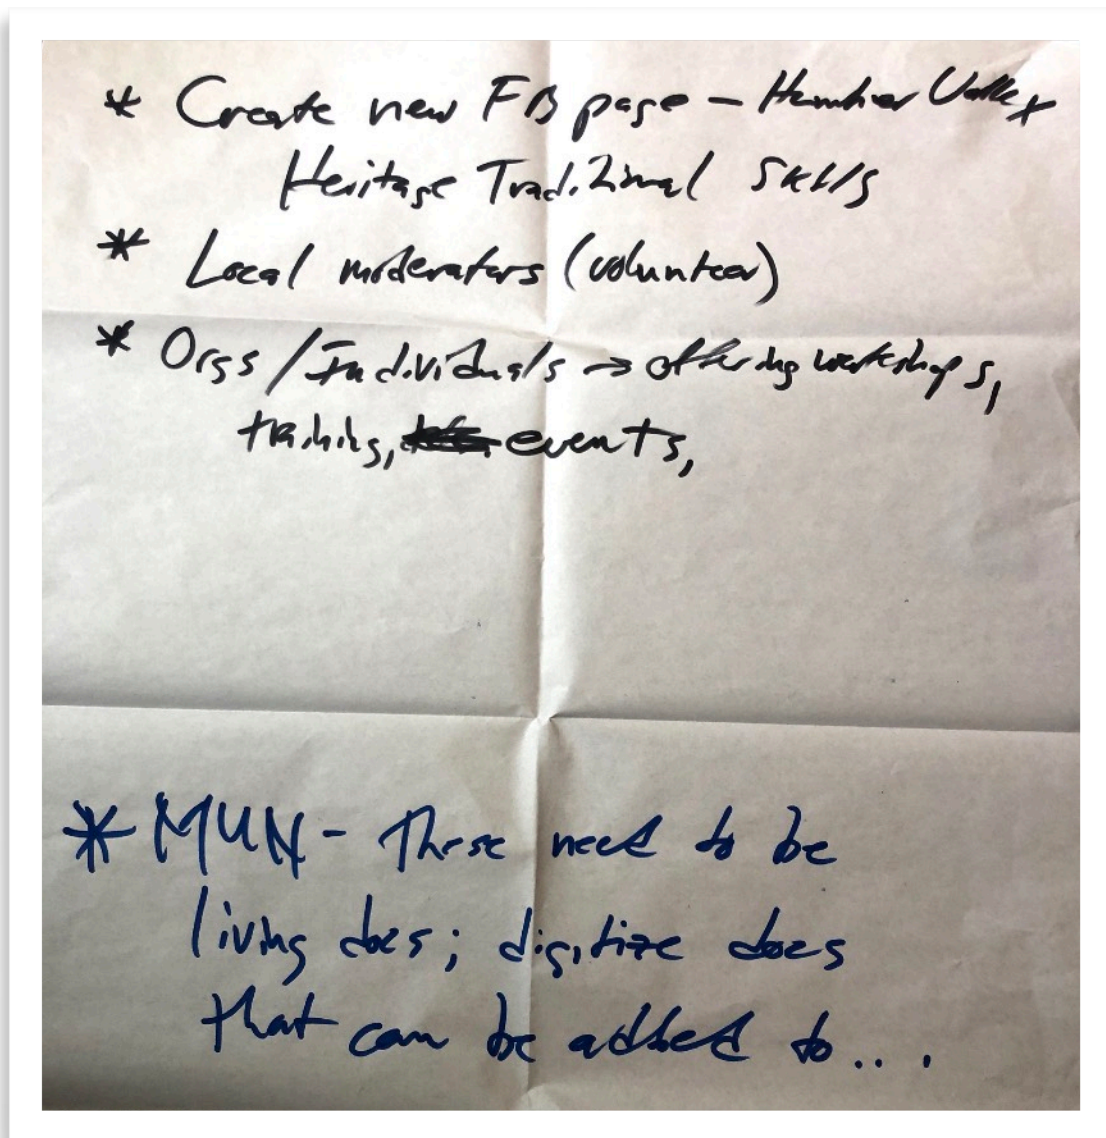 * Create new FB page - Humber Valley
Heritage Traditional Skills
* Local moderators (volunteer)
* Orgs / Individuals → offering workshops,
training, events,
* MUN - These need to be
living docs; digitize docs
that can be added to....